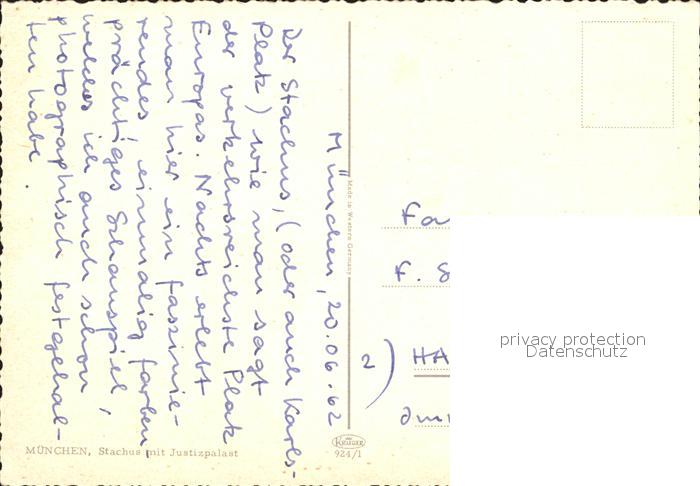 München, 20.06.62
Der Stachus, (oder auch Karls-
Platz) wie man sagt
der verkehrsreichste Platz
Europas. Nachts erlebt
man hier ein faszinie-
rendes einmalig farben,
prächtiges Schauspiel,
welches ich auch schon
photographisch festgehal-
ten habe.
Made in Western Germany
Fa
F. S
2) HA
privacy protection
Datenschutz
KRÜGER
924/1
MÜNCHEN, Stachus mit Justizpalast